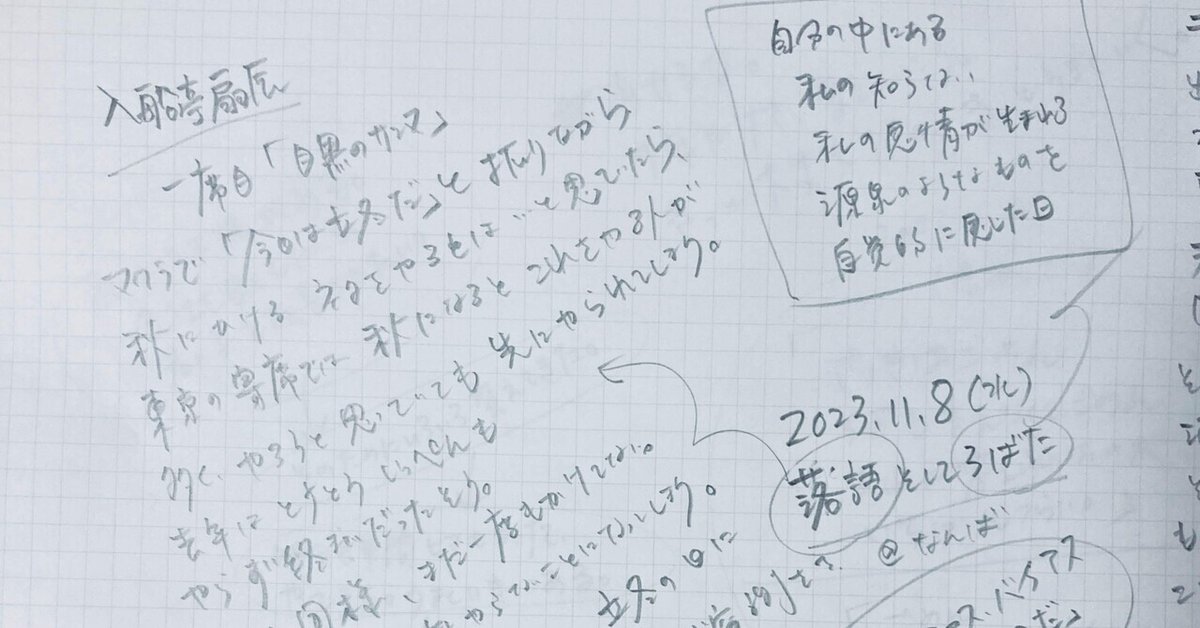 入船亭扇辰
一席目「目黒のサンマ」
マクラで「今日は立冬だ」と振りながら
秋にかける ネタをやるとは…と思っていたら、
東京の寄席では 秋になると これをやる人が
多く、やろうと思っていても 先にやられてしまう。
去年は とうとう いっぺんも
やらず終いだったそう。
同様、まだ一席もかけてない。
やらないことになってしまう。
立冬の日に
自分の中にある
私の知らない
私の感情が生まれる
源泉のようなものを
自覚的に感じた日
2023.11.8(水)
落語 そして ろばた
@なんば
バイアス